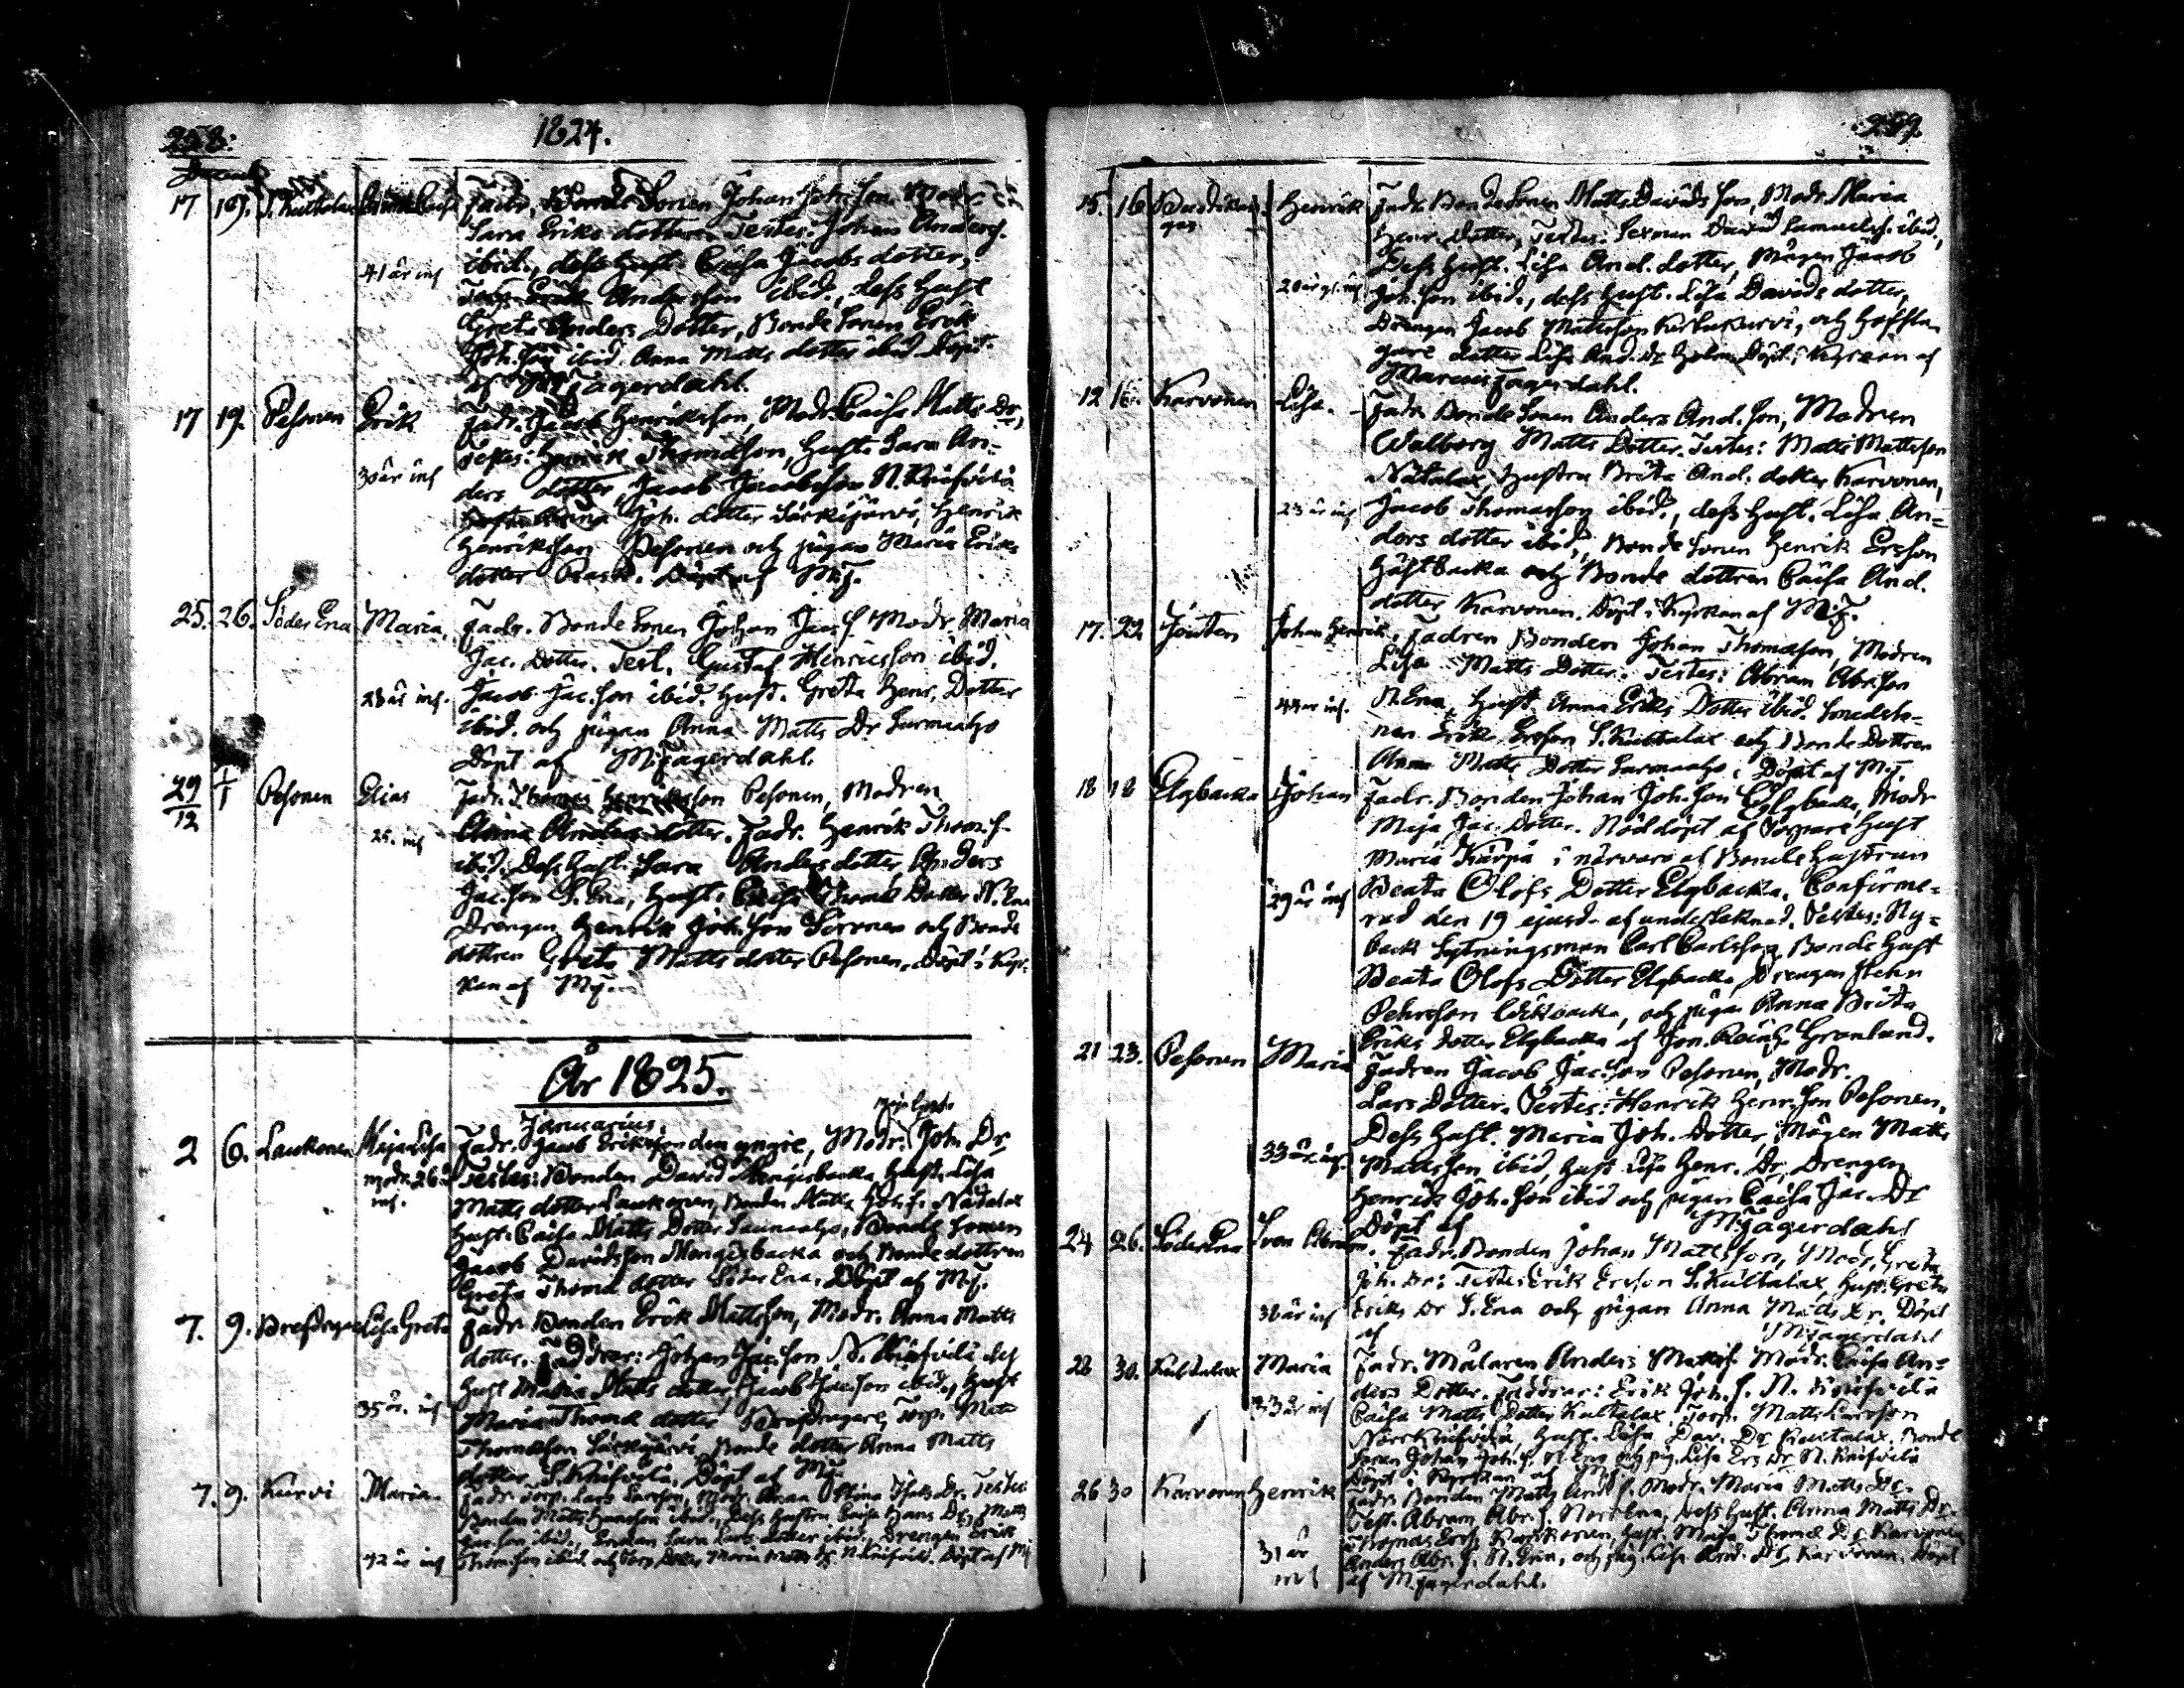 258.
1824.
Decemb.
17 19. S. Kultalax
Fadr. Bonde Sonen Johan Joh. Son. Mod
Sara Eriks dotter. Testes: Johan Anderss.
41 år inf
ibid., dess Hust. Caisa Jacobs dotter,
Andersson ibid., dess Hust
Greta Anders Dotter, Bonde Sonen Erik
Joh. Son ibid. Anna Matts dotter ibid Döpt.
af Fagerdahl.
17 19. Pesonen Erik Fadr. Jacob Henriksson, Modr. Caisa Matts Dr,
Testes: Henrik Thomasson, Hust. Sara An-
30 år inf
ders dotter, Jacob Jacobsson N. Knifvilä
Hust. Anna Joh. dotter Särkijärvi, Henrik
Henriksson Pesonen och pigan Maria Eriks
dotter Rask. Döpt af M.F.
25. 26. Söder Ena Maria. Fadr. Bonde Sonen Johan Jac. S. Modr. Maria
Jac. Dotter. Test. Gustaf Henricsson ibid.
28 år inf.
Jacob Jac. Son ibid. Hust. Greta Henr. Dotter
ibid. och pigan Anna Matts Dr Surmaaho
Döpt af M. Fagerdahl.
29/12 1/1 Pesonen Elias Fadr. Thomas Henriksson Pesonen, Modren
25. inf
Anna Anders dotter. Fadr. Henrik Thom. S.
ibid. Dess Hust. Sara Anders dotter, Anders
Jac. Son S. Ena, Hust. Caisa Thoms Dotter N. Ena
Drengen Henrik Joh. Son Soronen och Bonde
dottren Greta Matts dotter Pesonen. Döpt i Kyr-
kan af M.F.
År 1825.
Januarius.
Maja Greta
2 6. Laukonen Maja Lisa Fadr. Jacob Eriksson den yngre, Modr. Joh. Dr
modr. 26 år
inf.
Testes: Bonden David Mengisbacka, Hust. Lisa
Matts dotter Laukonen, Bonden Matts Joh. S. Nätalax
Hust. Caisa Matts Dotter Surmaaho, Bonde Sonen
Jacob Davidsson Mengisbacka och Bonde dottren
Greta Thoms dotter Söder Ena. Döpt af M.F.
7. 9. Lisa Greta Fadr. Bonden Erik Mattsson, Modr. Anna Matts
dotter. Faddrar: Johan Jac. Son N. Knifvilä dess
35 år. inf
Hust Maria Matts dotter, Jacob Jac. Son ibid., Hust
Maria Thoms dotter Torp. Matts
Thomasson Särkijärvi, Bonde dotter Anna Matts
dotter S. Knifvilä. Döpt af M.F.
7. 9. Kurvi Maria. Fadr. Torp. Lars Larsson, Modr. Anna Dr. Testes
Bonden Matts Hansson ibid., dess Hustru Caisa Hans Dr, Matts
Jac. Son ibid., Enkan Sara Lars dotter ibid., Drengen Erik
42 år inf
Thomasson ibid. och Torp. Maria Matts Dr N. Knifvilä. Döpt af M.F
259.
15. 16 Henrik Fadr. Bonde Sonen Matts Davids Son, Modr. Maria
Henr. Dotter, Testes: Sexman David Samuelss. ibid,
20 år gl. inf
Dess Hust. Lisa And. dotter, Mågen Jacob
Joh. Son ibid., dess Hust. Lisa Davids dotter,
Drengen Jacob Mattsson och
dotter Lisa And. Dr Döpt i Kyrkan af
Marcus Fagerdahl.
12 16. Karvonen Lisa. Fadr. Bonde Sonen Anders And. Son, Modren
Walborg Matts Dotter. Testes: Matts Mattsson
Nätalax, Hustru Brita And. dotter Karvonen,
23 år inf
Jacob Thomasson ibid., dess Hust. Lisa An-
ders dotter ibid., Bonde Sonen Henrik Ersson
Hästbacka och Bonde dottren Caisa And.
dotter Karvonen. Döpt i Kyrkan af M.F.
17. 22 Jouten Johan Henrik. Fadren Bonden Johan Thomasson, Modren
Lisa Matts Dotter. Testes: Abram Abr. Son
44 år inf.
N. Ena, Hust. Anna Eriks Dotter ibid.
Erik Ersson S. Kultalax och Bonde Dottren
Anna Matts Dotter Surmaaho. Döpt af M.F.
18 18 Elgbacka Johan Fadr. Bonden Johan Joh. Son Elgbacka, Modr
Maja Jac. Dotter. Nöddöpt af Torpare Hust
Maria Kärpä i närvaro af Bonde Hustrun
29 år inf
Beata Olofs Dotter Elgbacka. Confirme-
rad den 19 ejusd. af undertecknad. Testes: Ny-
back Sytningsman Carl Carlsson, Bonde Hust
Beata Olofs Dotter Elgbacka, Drengen
Pehrsson och pigan Anna Brita
Eriks dotter Elgbacka af Granlund.
21 23. Pesonen Maria Fadren Jacob Jac. Son Pesonen, Modr.
Lars Dotter. Testes: Henrik Henr. Son Pesonen,
Dess Hust. Maria Joh. Dotter, Mågen Matts
33 år. inf.
Mattsson ibid, Hust Lisa Henr. Dr, Drengen
Henrik Joh. Son ibid och pigan Caisa Jac. Dr
Döpt af M. Fagerdahl
24 26. Söder Ena Fadr. Bonden Johan Mattsson, Modr. Greta
Joh. Dr. Testes Erik Ersson S. Kultalax, Hust. Greta
36 år inf
Eriks Dr S. Ena och pigan Anna Matts Dr. Döpt
af M. Fagerdahl
28 30. Kultalax Maria Fadr. Målaren Anders Matts S. Modr. Caisa An-
ders Dotter. Faddrar: Erik Joh. S. N. Knifvilä
33 år inf
Caisa Matts Dotter Kultalax, Torp. Matts Larsson
Norr Knifvilä, Hust. Lisa Dav. Dr Kultalax, Bonde
Sonen Johan Joh. S. N. Ena och pig. Lisa Ers Dr N. Knifvilä
Döpt i Kyrkan af M.F.
26 30 Karvonen Henrik Fadr. Bonden Matts And. S. Modr. Maria Matts Dr.
Test. Abram Abr. S. Norr Ena, Dess Hust. Anna Matts Dr.
Thomas Ers S. Karvonen, Hust. Maja Thoms Dr. Karvonen
31 år
inf
Anders Abr. S. N. Ena, och pig. Lisa And. Dr. Karvonen. Döpt
af M. Fagerdahl.